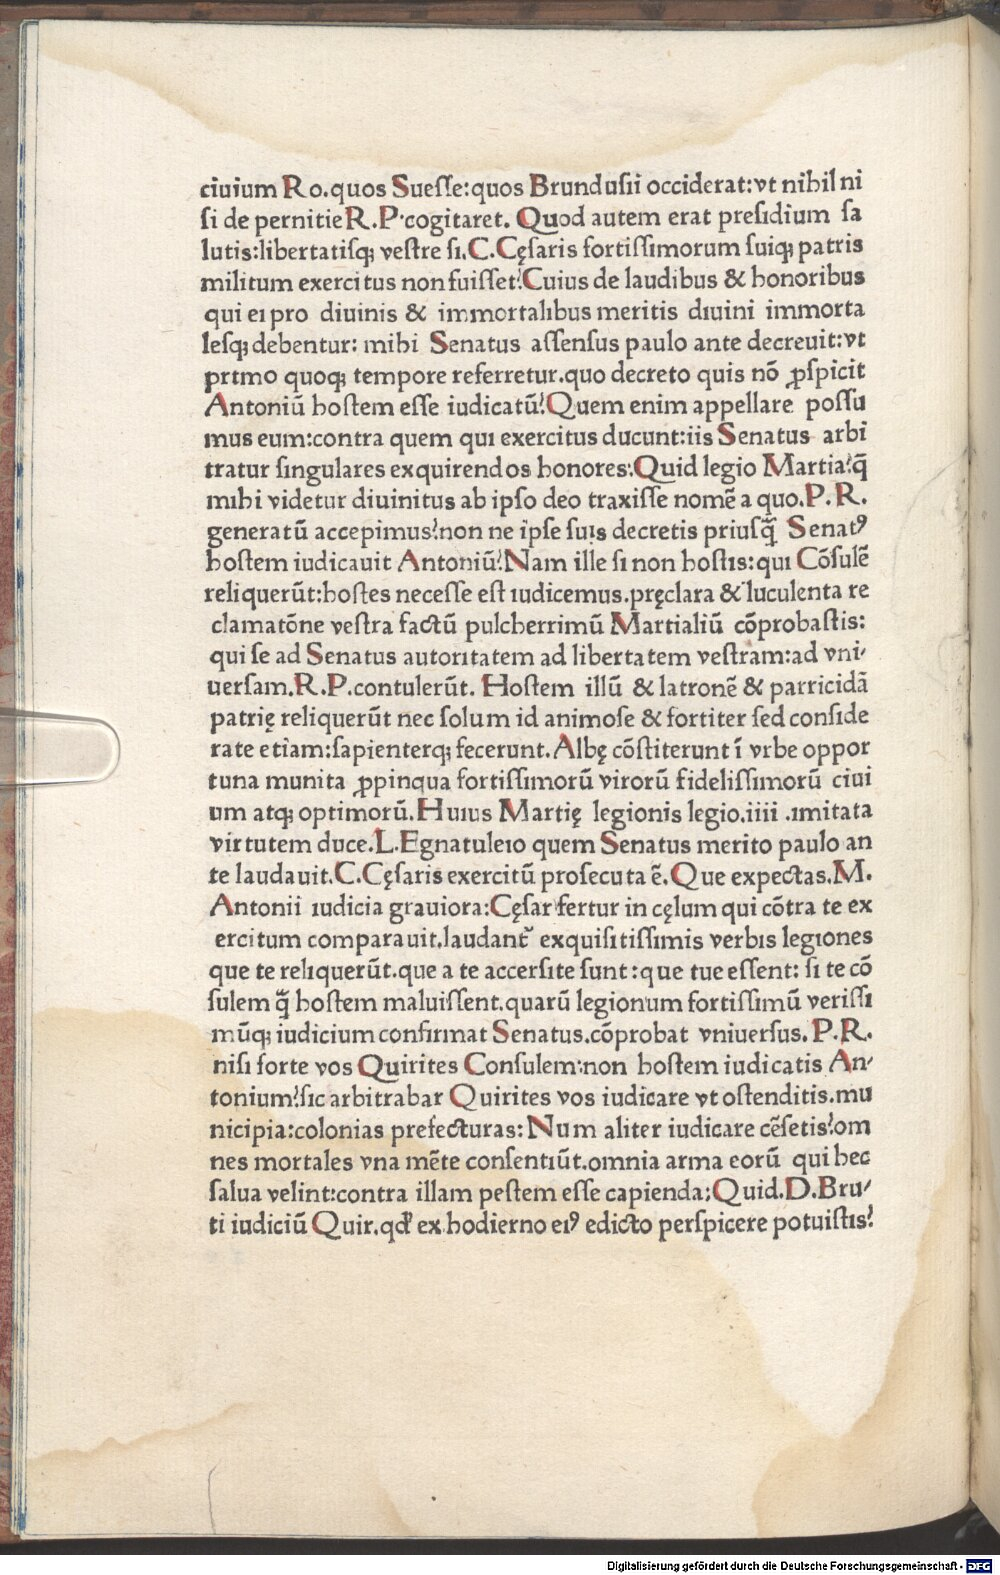 ciuium Ro.quos Sueſſe:quos Brunduſii occiderat:vt nihil ni
ſi de pernitie R.P.cogitaret. Quod autem erat preſidium ſa
lutis:libertatiſqꝫ veſtre ſi.C.Cęſaris fortiſſimorum ſuiqꝫ patris
militum exercitus non fuiſſet?Cuius de laudibus & honoribus
qui ei pro diuinis & immortalibus meritis diuini immorta
leſqꝫ debentur: mihi Senatus aſſenſus paulo ante decreuit:vt
prtmo quoqꝫ tempore referretur.quo decreto quis nō ꝓſpicit
Antoniū hoſtem eſſe iudicatū?Quem enim appellare poſſu
mus eum:contra quem qui exercitus ducunt:iis Senatus arbi
tratur ſingulares exquirendos honores:Quid legio Martia?q̄
mihi videtur diuinitus ab ipſo deo traxiſſe nomē a quo.P.R.
generatū accepimus?non ne ipſe ſuis decretis priuſq̄ Senatꝰ
hoſtem iudicauit Antoniū?Nam ille ſi non hoſtis:qui Cōſulē
reliquerūt:hoſtes neceſſe eſt iudicemus.pręclara & luculenta re
clamatōne veſtra factū pulcherrimū Martialiū cōprobaſtis:
qui ſe ad Senatus autoritatem ad libertatem veſtram:ad vni⸗
uerſam.R.P.contulerūt. Hoſtem illū & latronē & parricidā
patrię reliquerūt nec ſolum id animoſe & fortiter ſed conſide
rate etiam:ſapienterqꝫ fecerunt.Albę cōſtiterunt ī vrbe oppor
tuna munita ꝓpinqua fortiſſimorū virorū fideliſſimorū ciui
um atqꝫ optimorū.Huius Martię legionis legio.iiii .imitata
virtutem duce.L.Egnatuleio quem Senatus merito paulo an
te laudauit.C.Cęſaris exercitū proſecuta ē.Que expectas.M.
Antonii iudicia grauiora:Cęſar fertur in cęlum qui cōtra te ex
ercitum comparauit.laudant᷑ exquiſitiſſimis verbis legiones
que te reliquerūt.que a te accerſite ſunt:que tue eſſent: ſi te cō
ſulem q̄ hoſtem maluiſſent.quarū legionum fortiſſimū veriſſi
mūqꝫ iudicium confirmat Senatus.cōprobat vniuerſus. P.R.
niſi forte vos Quirites Conſulem:non hoſtem iudicatis An⸗
tonium?ſic arbitrabar Quirites vos iudicare vt oſtenditis.mu
nicipia:colonias prefecturas:Num aliter iudicare cēſetis?om
nes mortales vna mēte conſentiūt.omnia arma eorū qui hec
ſalua velint:contra illam peſtem eſſe capienda:Quid.D.Bru⸗
ti iudiciū Quir.qđ ex hodierno eiꝰ edicto perſpicere potuiſtis?
Digitalisierung gefördert durch die Deutsche Forschungsgemeinschaft - DFG